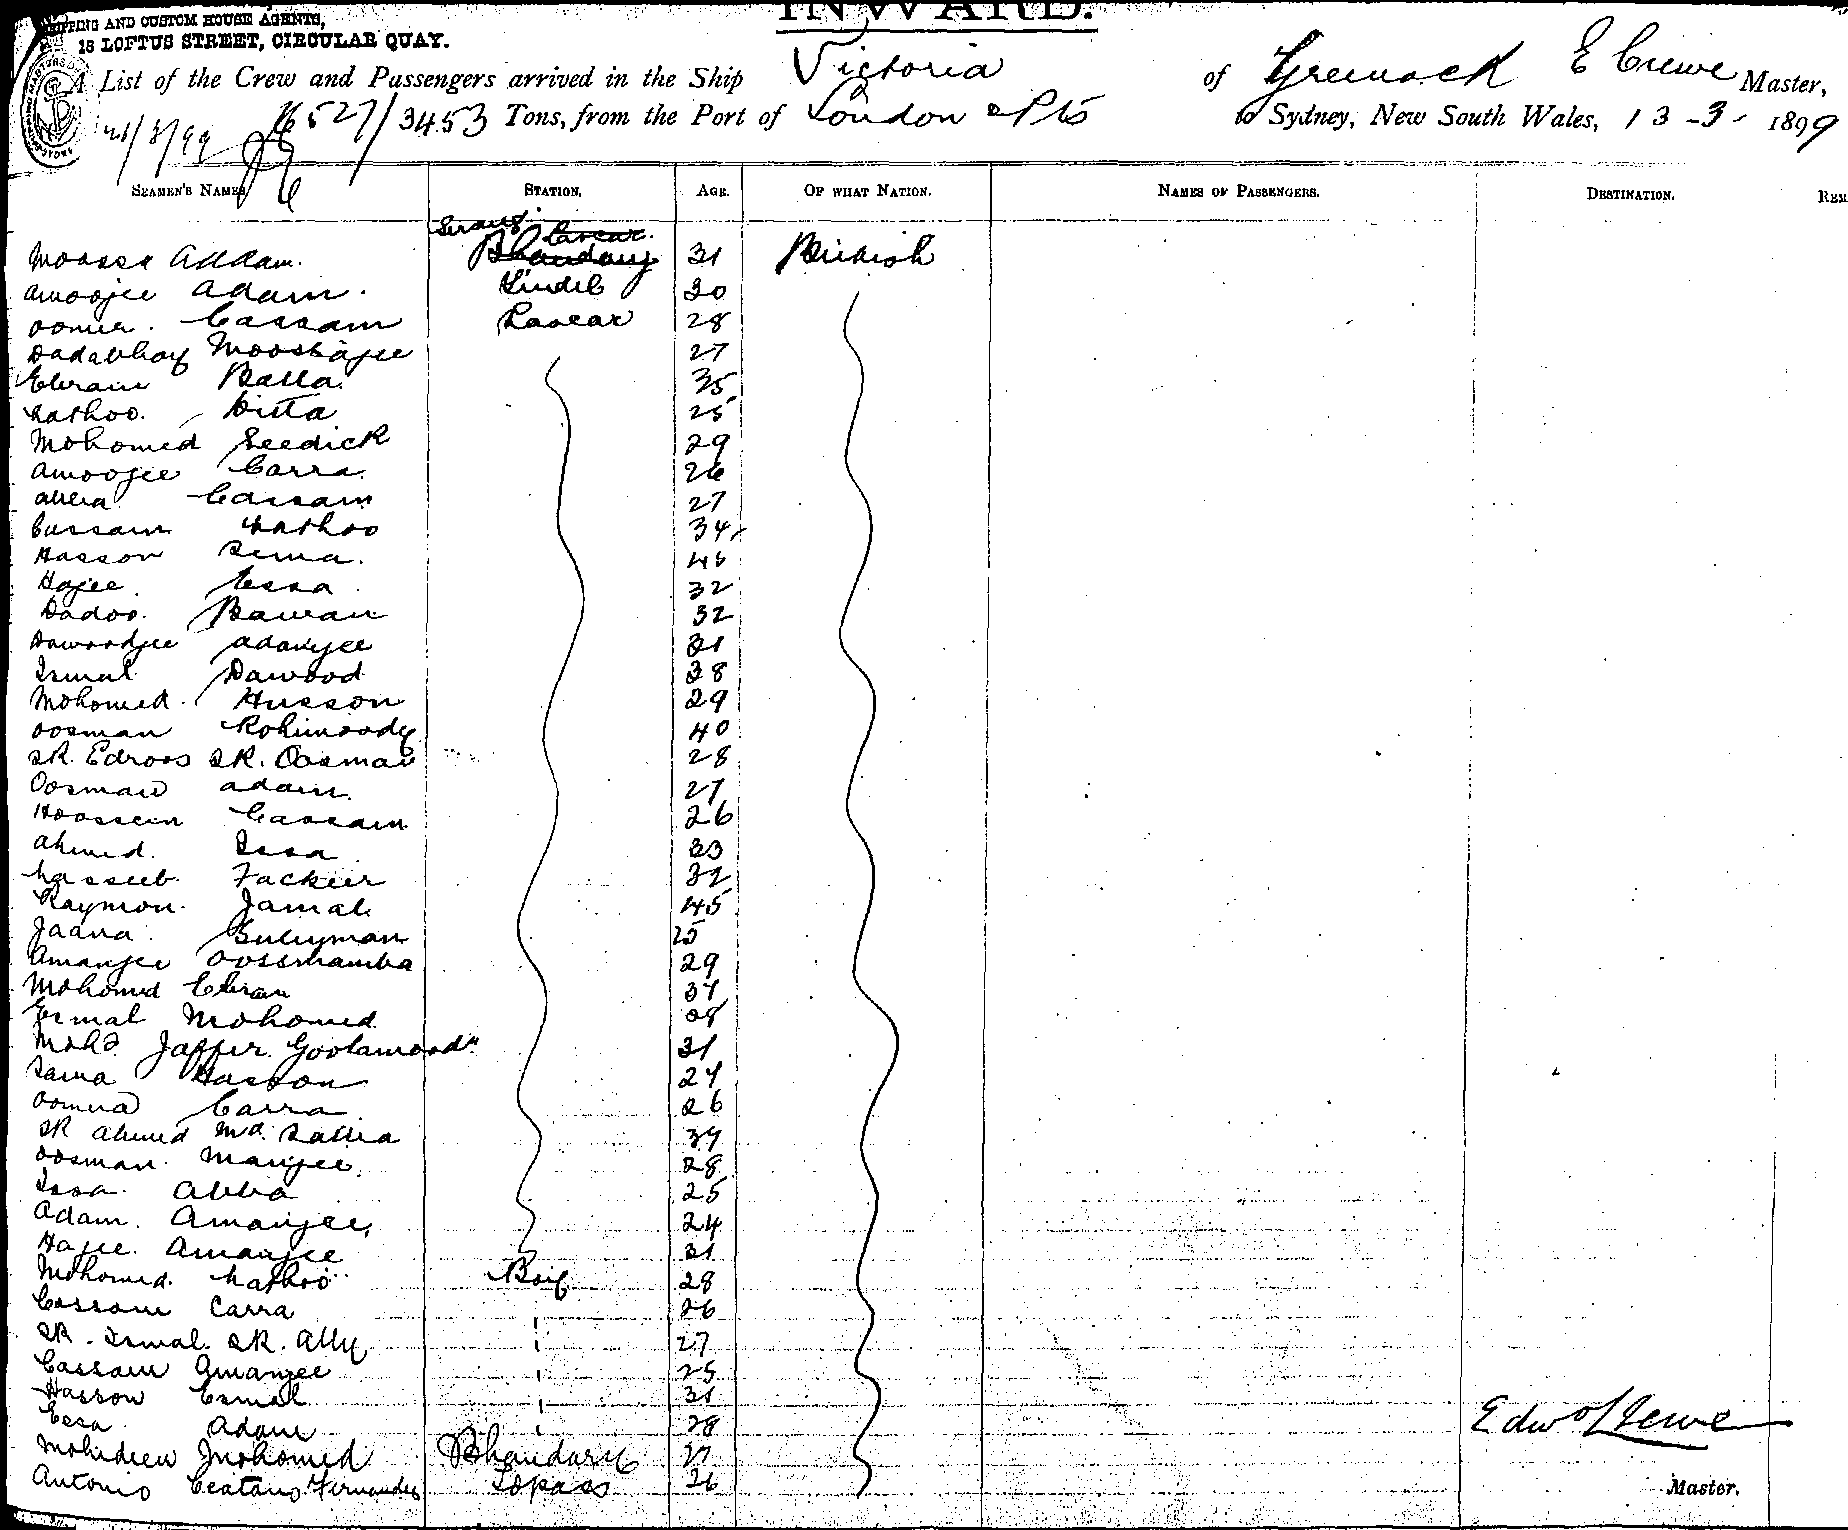 INWARD.
SHIPPING AND CUSTOM HOUSE AGENTS,
18 LOFTUS STREET, CIRCULAR QUAY.
A List of the Crew and Passengers arrived in the Ship Victoria of Greenock E Crewe Master,
6527/3453 Tons, from the Port of London & Pts to Sydney, New South Wales, 13-3-1899
SEAMEN'S NAMES STATION. AGE. OF WHAT NATION. NAMES OF PASSENGERS. DESTINATION. REM
Serang Lascar
Moosa Addam. Bhandary 31 British
Amoojee Adam. Tindel 30
Oomer. Cassam Lascar 28
Dadabhoy Moosajee 27
Ebram Balla 35
Nathoo. Ditta 25
Mohomed Seedick 29
Amoojee Carra. 26
Abba Cassam 27
Cassam Nathoo 34
Hasson Sema. 45
Hajee. Essa 32
Dadoo. Bawan 32
Dawoodjee Adamjee 31
Ismal Dawood 38
Mohomed. Husson 29
Oosman Rohimoody 40
SK. Edroos SK. Oosman 28
Oosman Adam. 27
Hoossein Cassam 26
Ahmed. Issa 33
Fackeer 32
Raymon. Jamal. 45
Jaana. Suleyman 25
Amanjee 29
Mohomed Ebram 37
Ismal Mohomed 28
Mohd. Jaffir. 31
Sama Hasson 27
Carra. 26
SK Ahmed Md. 39
Oosman. Manjee. 28
Issa. Abba 25
Adam. Amanjee. 24
Hajee. Amanjee 31
Mohomed. Nathoo Boy 28
Cassam Carra 26
SK. Ismal. SK. Ally 27
Cassam Amanjee 25
Hasson Esmal 31
Essa Adam 28
Edwd Crewe
Mohideen Mohomed Bhandary 27
Antonio Ceatano Fernandes Topass 26 Master.